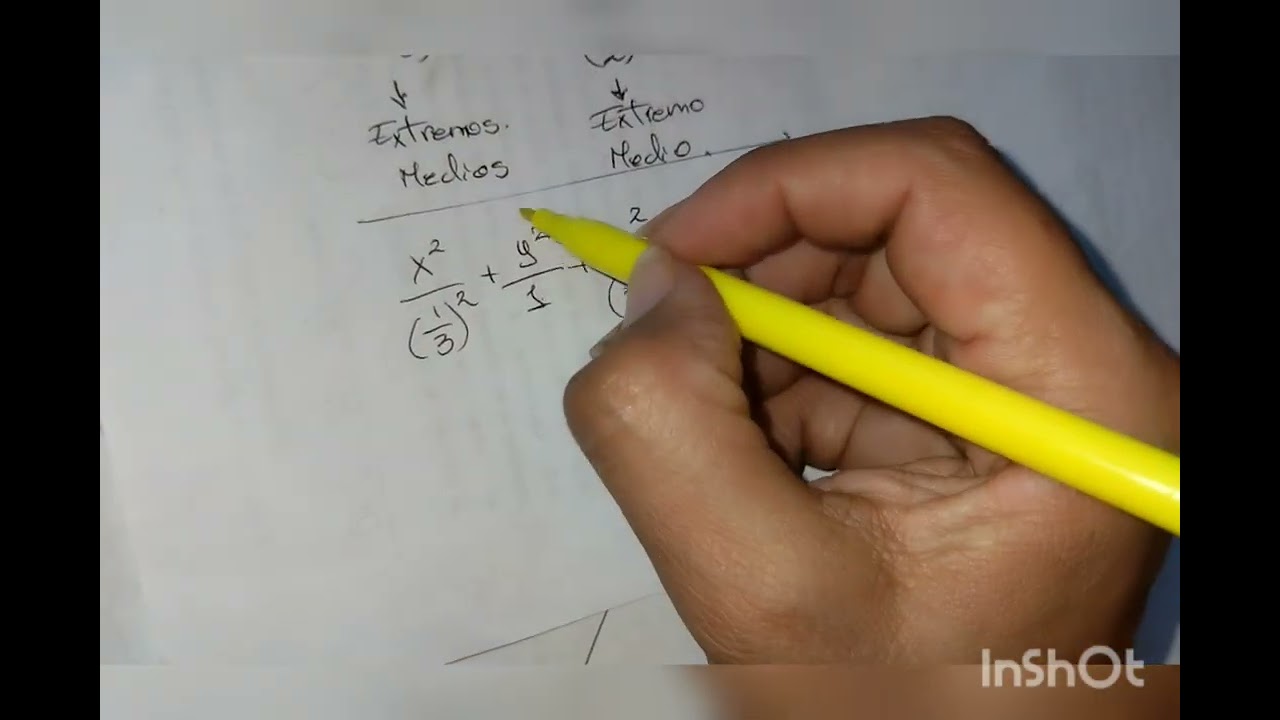 Extremos.
Medios
Extremo
Medio.
x² + y² + ²
(1/3)² 1 (
InShOt